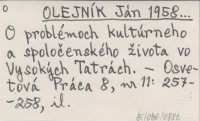 OLEJNÍK Ján 1958...
O problémoch kultúrneho
a spoločenského života vo
Vysokých Tatrách. - Osve-
tová Práca 8, nr 11: 257-
-258, il.